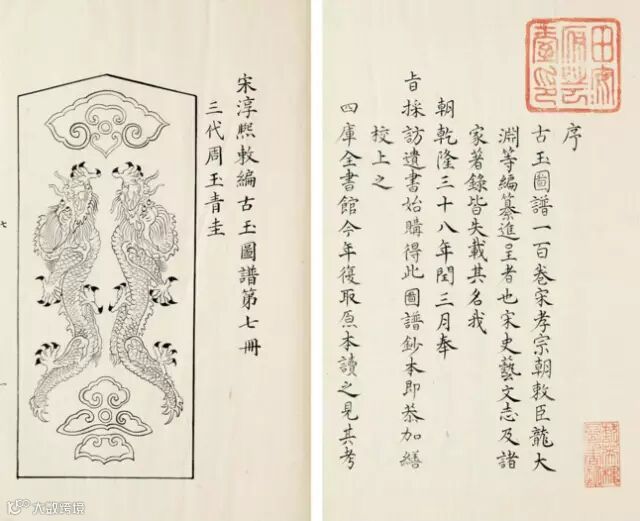 序
古玉圖譜一百卷宋孝宗朝敕臣龍大
淵等編纂進呈者也宋史藝文志及諸
家著錄皆失載其名我
朝乾隆三十八年閏三月奉
旨採訪遺書始購得此圖譜鈔本即恭加繕
校上之
四庫全書館今年復取原本讀之見其考
宋淳熙敕編古玉圖譜第七冊
三代周玉青圭
七
一
大数跨境